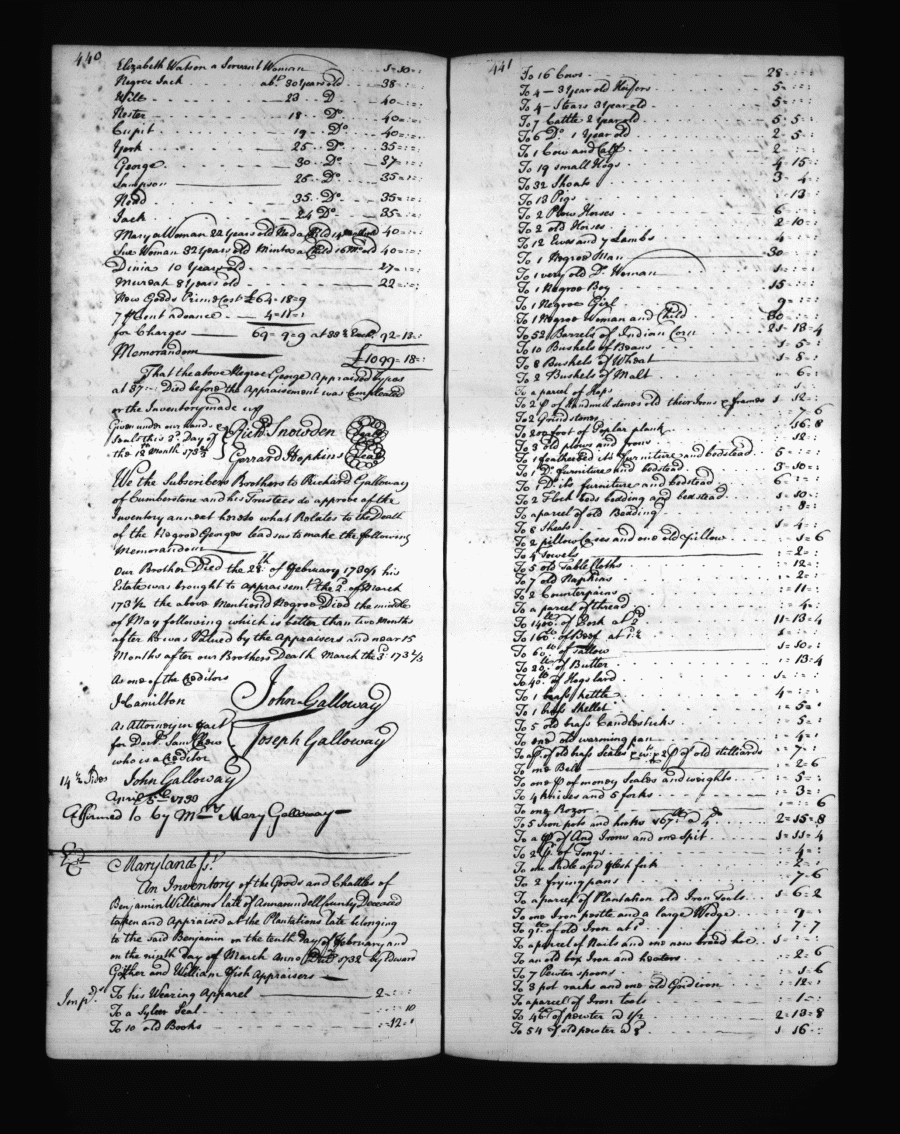 440
Elizabeth Watson a Servant Woman 5=10=:
Negroe Jack abt. 30 Years old 38=:
Will 23 Do 40=:
Nester 18 Do 40=:
Cupit 19 Do 40=:
York 25 Do 35=:
George 30 Do 37=:
Sampson 26 Do 35=:
Nedd 35 Do 35=:
Jack 24 Do 35=:
Mary a Woman 22 Years old Ned a Child 14 40=:
Sue Woman 32 Years old Minta a Child 40=:
Dinia 10 Years old 27=:
Mureah 8 Years old 22=:
New Goods Prime Cost £64=18=9
7 Ct advance 4=11=:
for Charges 69=9=9 at 92=13=:
Memorandom £1099=18=:
That the above Negroe George Appraised by us
at 37 Died before the Appraisement was Compleated
or the Inventory made up
Given under our hands &
Seals this 3d. Day of
the 12th month
Richd. Snowden Seal
Gerrard Hopkins Seal
We the Subscribers Brothers to Richard Galloway
of Cumberstone and his Trustees do approve of the
Inventory annext hereto what Relates to the Death
of the Negroe George leads us to make the following
Memorandum
Our Brother Died the 28th. of February 1730/1 his
Estate was brought to appraisemt. the 2d. of March
1731/2 the above Mentioned Negroe Died the middle
of May following which is better than two Months
after he was Valued by the Appraisers and near 15
Months after our Brothers Death March the 3d. 1732/3
As one of the Creditors
J Hamilton
John Galloway
As Attorney in fact
for Doctr. Saml. Chew
who is a Creditor
Joseph Galloway
14½ Sides
John Galloway
April 5th 1733
Affirmed to by Mrs Mary Galloway
Ext
Maryland ss.
An Inventory of the Goods and Chattles of
Benjamin Williams late of Annarundell County Deceased
taken and Appraised at the Plantations late belonging
to the said Benjamin on the tenth Day of February and
on the ninth Day of March Anno 1732 by
Gother and William Fish Appraisers
Imps. To his Wearing Apparel 2=:
To a Sylver Seal :=:10
To 10 old Books :=12=:
441
To 16 Cows 28
To 4 - 3 Year old Heifers 5=
To 4 - Stears 3 Year old 5=:
To 7 Cattle 2 Year old 5=5=:
To 6 Do. 1 Year old 2=5=
To 1 Cow and Calf 2=
To 19 small Hogs 4=15=
To 32 Shoats 3=4=
To 13 Pigs 13=
To 2 Plow Horses 6=
To 2 old Horses 2=10=:
To 12 Ewes and 7 Lambs 4=
To 1 Negroe Man 30=
To 1 very old Do. Woman 1=
To 1 Negroe Boy 15=
To 1 Negroe Girl 9=
To 1 Negroe Woman and Child 30=:
To 52 Barrels of Indian Corn 21=13=4
To 10 Bushels of Beans 1=5=:
To 8 Bushels of Wheat 1=8=:
To 2 Bushels of Malt 6=
To a parcel of Hops 1=
To 2 pr of Handmill stones old their Irons & frames 1=12=
To 2 Grindstones 7=6
To 200 foot of Poplar plank 16=8
To 3 old plows and Irons 12=
To 1 featherbed its furniture and bedstead 5=
To 1 Do. furniture and bedstead 3=10=:
To 1 Do. its furniture and bedstead 6=
To 2 Flock beds bedding and bedstead 1=10=:
To a parcel of old Beading 8=
To 6 Sheets 1=4=
To 2 pillow Cases and one old pillow 1=6
To 4 towels 2=
To 5 old Table Cloths 12=
To 7 old Napkins 2=
To 2 Counterpains 11=
To a parcel of thread 4=
To 1400 of Pork at 2d 11=13=4
To 160 of Beef at 1=
To 60 of tallow 1=10=
To 20 of Butter 13=4
To 40 of Hogs lard 1=
To 1 brass kettle 4=
To 1 brass Skellet 5=
To 5 old brass Candlesticks 5=
To one old warming pan 4=
To a of old brass Scales & 2 pr of old stilliards 7=
To one Bell 2=6
To one pr of money Scales and weights 5=
To 4 knives and 5 forks 3=
To one Razor 6
To 5 Iron pots and hooks 167 a 4d 2=15=8
To a pr of And Irons and one Spit 1=11=4
To 2 pr of Tongs 4=
To one Ladle and flesh fork 2=
To 2 frying pans 7=6
To a parcel of Plantation old Iron Tools 1=6=2
To one Iron pestle and a large Wedge 9=
To 91 of old Iron at 1d 7=7
To a parcel of Nails and one new broad hoe 1=
To an old box Iron and heaters 2=6
To 7 Pewter spoons 1=6
To 3 pot racks and one old Gridiron 12=
To a parcel of Iron tools 1=
To 46 of pewter a 1/2 2=13=8
To 54 of old pewter a 8 1=16=: